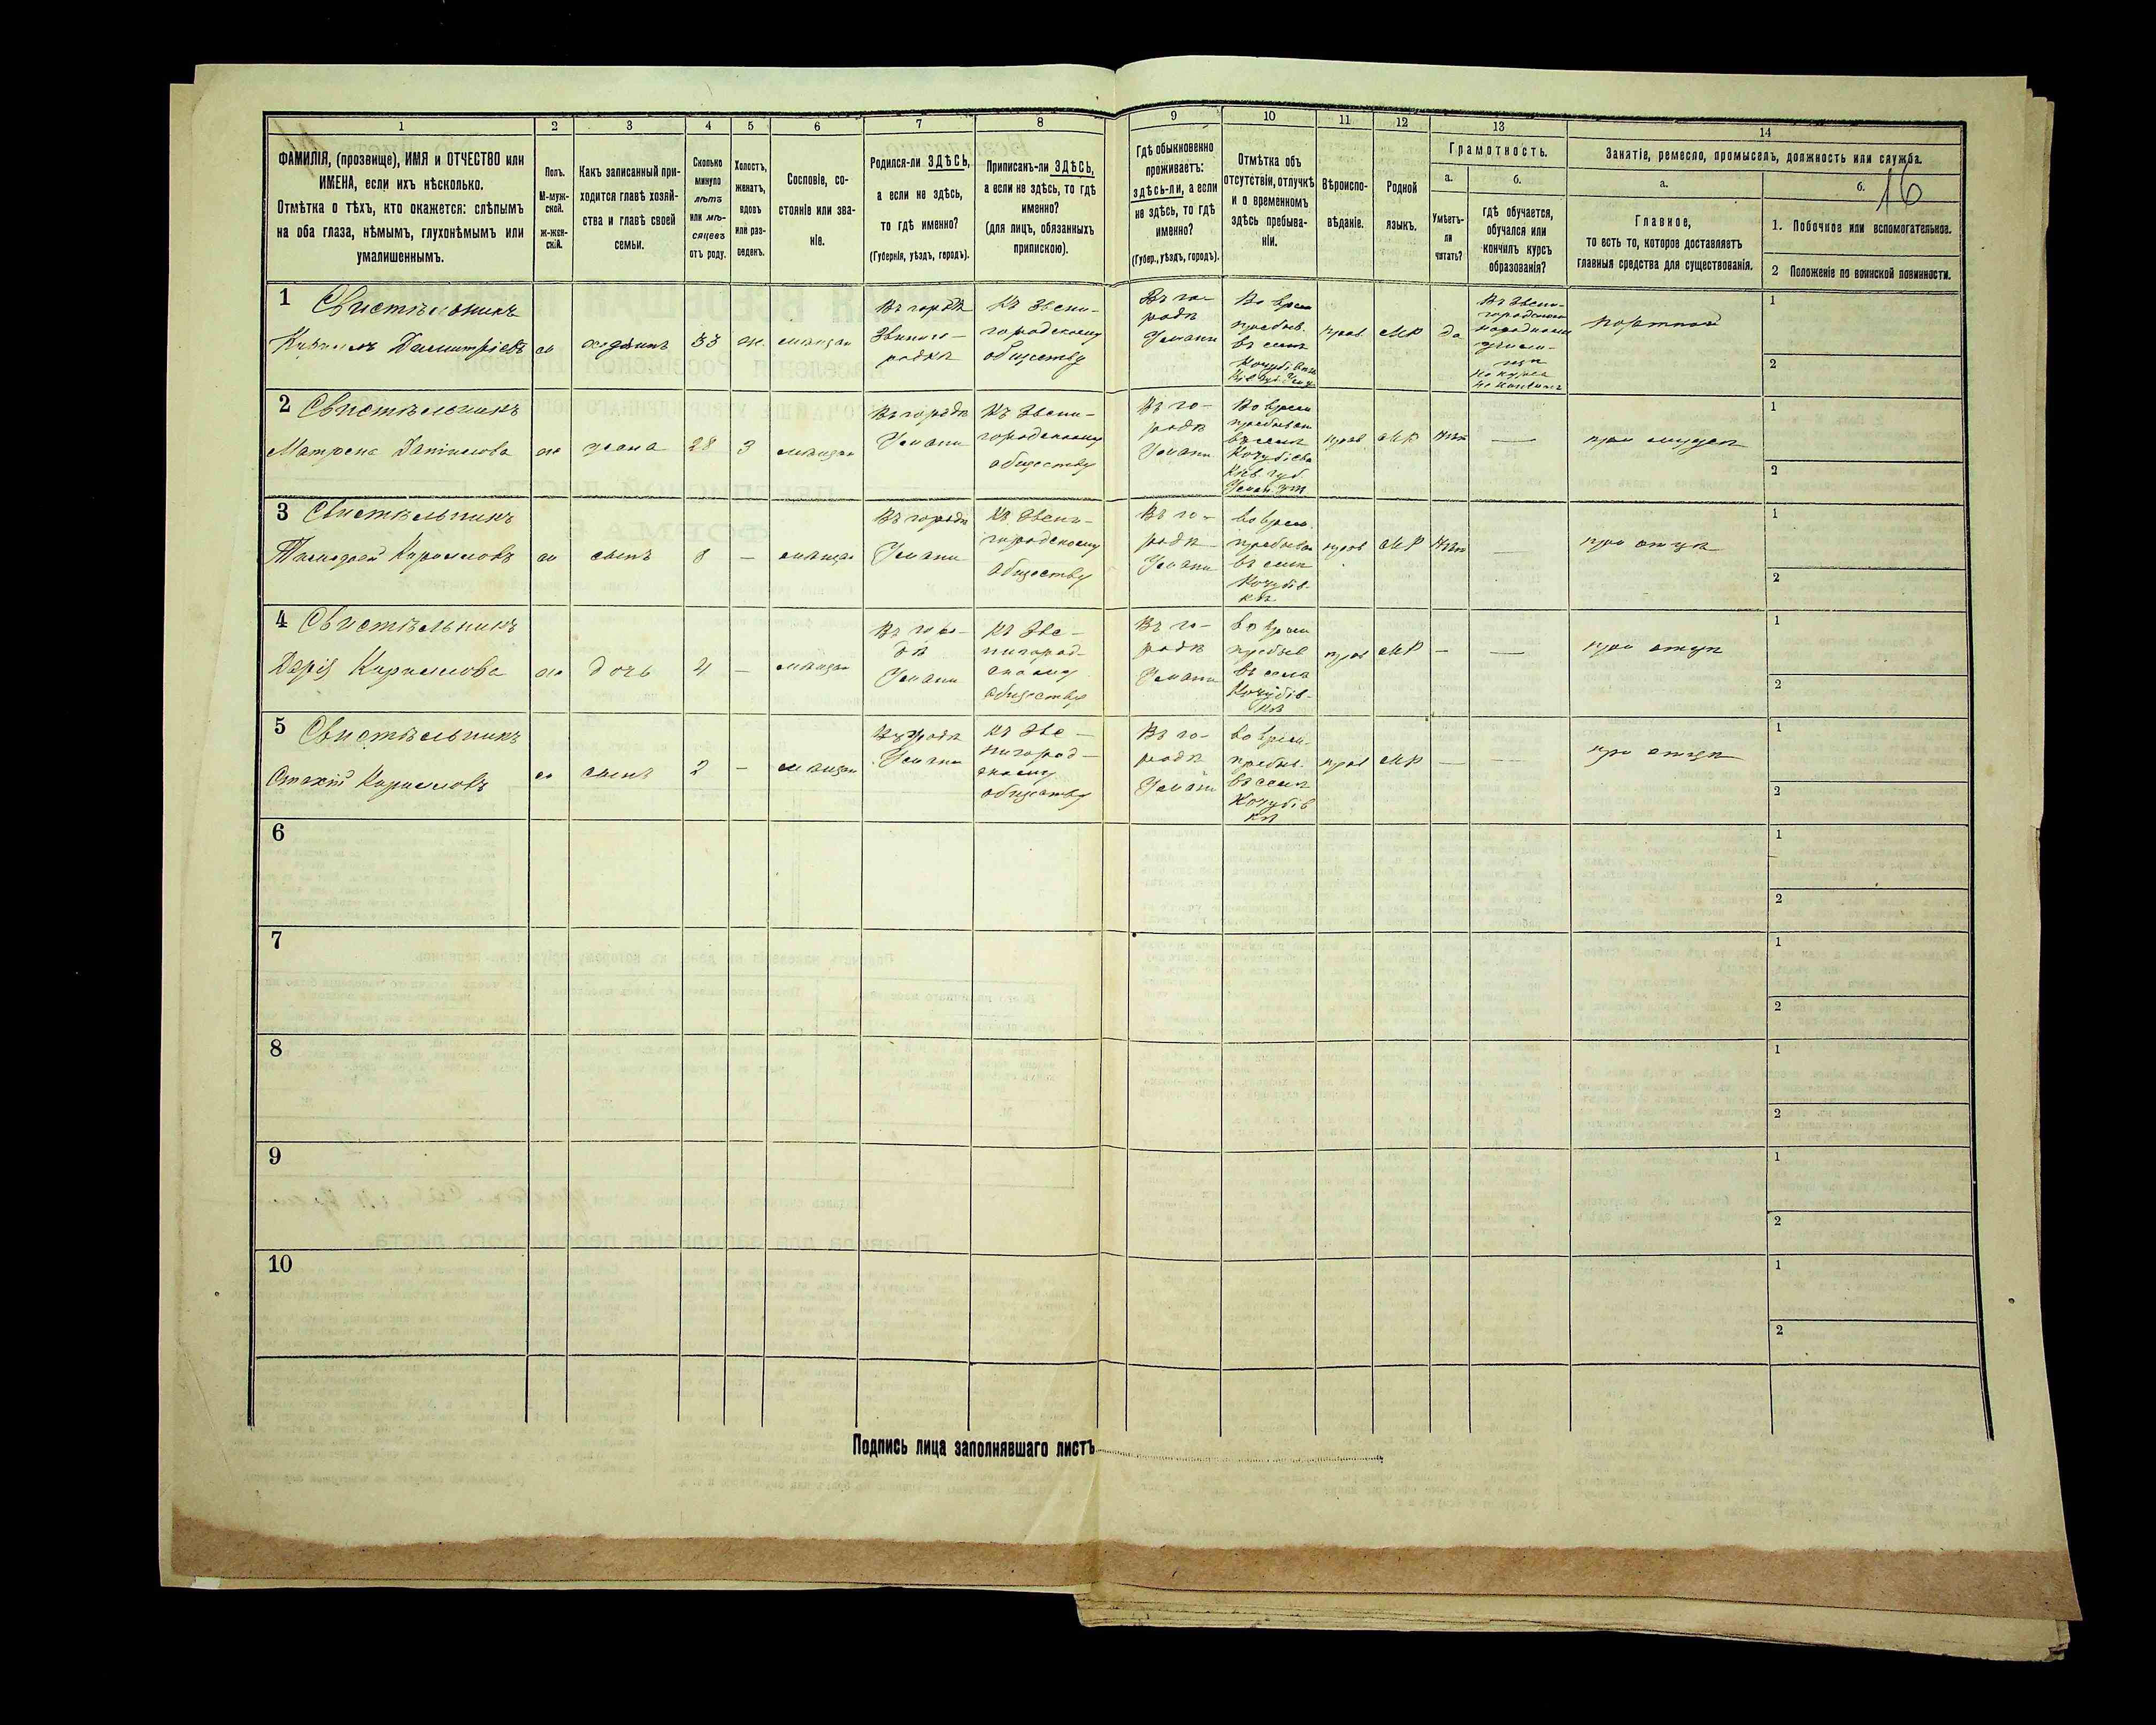 1 2 3 4 5 6 7 8 9 10 11 12 13 14
ФАМИЛІЯ, (прозвище), ИМЯ и ОТЧЕСТВО или
ИМЕНА, если ихъ нѣсколько.
Отмѣтка о тѣхъ, кто окажется: слѣпымъ
на оба глаза, нѣмымъ, глухонѣмымъ или
умалишеннымъ.
Полъ.
М-муж-
ской.
ж-жен-
скій.
Какъ записанный при-
ходится главѣ хозяй-
ства и главѣ своей
семьи.
Сколько
минуло
лѣтъ
или мѣ-
сяцевъ
отъ роду.
Холостъ,
женатъ,
вдовъ
или раз-
веденъ.
Сословіе, со-
стояніе или зва-
ніе.
Родился-ли ЗДѢСЬ,
а если не здѣсь,
то гдѣ именно?
(Губернія, уѣздъ, городъ).
Приписанъ-ли ЗДѢСЬ,
а если не здѣсь, то гдѣ
именно?
(для лицъ, обязанныхъ
припискою).
Гдѣ обыкновенно
проживаетъ:
здѣсь-ли, а если
не здѣсь, то гдѣ
именно?
(Губер., уѣздъ, городъ).
Отмѣтка объ
отсутствіи, отлучкѣ
и о временномъ
здѣсь пребыва-
ніи.
Вѣроиспо-
вѣданіе.
Родной
языкъ.
Грамотность.
а.
Умѣетъ-
ли
читать?
б.
гдѣ обучается,
обучался или
кончилъ курсъ
образованія?
Занятіе, ремесло, промыселъ, должность или служба.
а.
Главное,
то есть то, которое доставляетъ
главныя средства для существованія.
б.
16
1. Побочное или вспомогательное.
2 Положеніе по воинской повинности.
1 Свистѣльникъ
Дмитріевъ
м
33
ж.
мѣщан
Въ городѣ
Звениго-
родкѣ
Къ Звени-
городскому
обществу
Въ го-
родѣ
Умани
Во врем
пребыв.
въ селѣ
прав
МР
да
Въ Звени-
городском
народном
училищѣ
курса
не кончилъ
портной
1
2
2 Свистѣльникъ
Матрена Даниилова
ж
жена
28
З
мѣщан
Въ городѣ
Умани
Къ Звени-
городскому
обществу
Въ го-
родѣ
Умани
Во врем
пребыван
въ селѣ
Кіев губ
Уман уѣ
прав
МР
Нѣт
—
при мужѣ
1
2
3 Свистѣльникъ
Кириловъ
м
сынъ
8
—
мѣщан
Въ городѣ
Умани
Къ Звени-
городскому
обществу
Въ го-
родѣ
Умани
во врем.
пребыван
въ селѣ
Кочубів-
кѣ
прав
МР
Нѣт
—
при отцѣ
1
2
4 Свистѣльникъ
Дарія Кирилова
ж
дочь
4
—
мѣщан
Въ горо-
дѣ
Умани
Къ Зве-
нигород-
скому
обществу
Въ го-
родѣ
Умани
во врем
пребыв
въ селѣ
Кочубів-
кѣ
прав
МР
—
—
при отцѣ
1
2
5 Свистѣльникъ
Стахій Кириловъ
м
сынъ
2
—
мѣщан
Въ городѣ
Умани
Къ Зве-
нигород-
скому
обществу
Въ го-
родѣ
Умани
во врем.
пребыв.
въ селѣ
Кочубів
кѣ
прав
МР
—
—
при отцѣ
1
2
6
1
2
7
1
2
8
1
2
9
1
2
10
1
2
Подпись лица заполнявшаго листъ